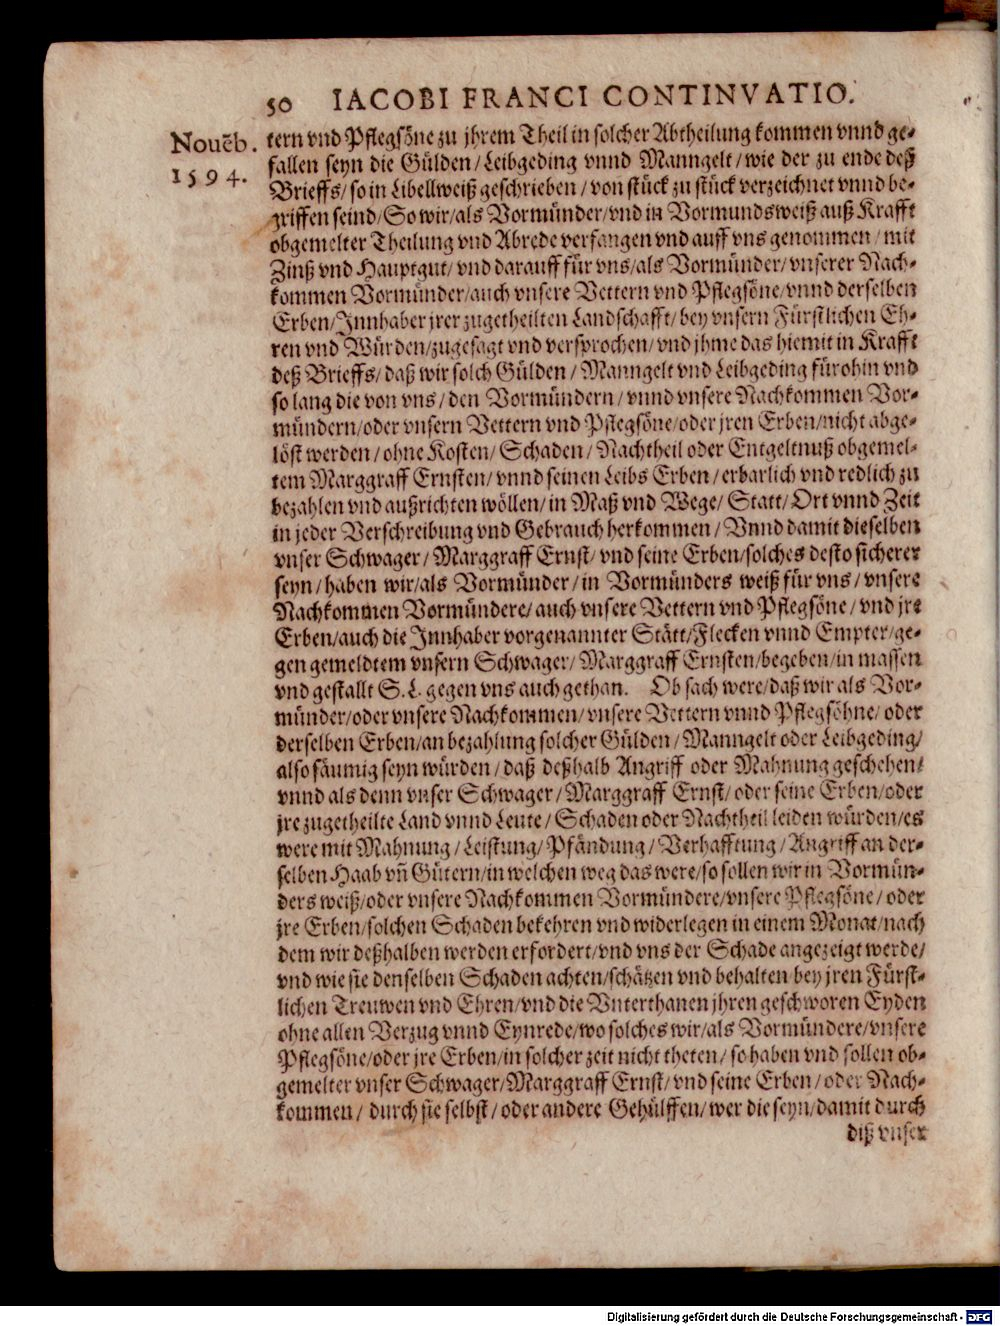 50 IACOBI FRANCI CONTINVATIO.
Nouẽb.
1594.
tern vnd Pflegsöne zu jhrem Theil in solcher Abtheilung kommen vnnd ge-
fallen seyn die Gülden / Leibgeding vnnd Manngelt / wie der zu ende deß
Brieffs / so in Libellweiß geschrieben / von stück zu stück verzeichnet vnnd be-
griffen seind / So wir / als Vormünder / vnd in Vormundsweiß auß Krafft
obgemelter Theilung vnd Abrede verfangen vnd auff vns genommen / mit
Zinß vnd Hauptgut / vnd darauff für vns / als Vormünder / vnserer Nach-
kommen Vormünder / auch vnsere Vettern vnd Pflegsöne / vnnd derselben
Erben / Innhaber jrer zugetheilten Landschafft / bey vnsern Fürstlichen Eh-
ren vnd Würden / zugesagt vnd versprochen / vnd jhme das hiemit in Krafft
deß Brieffs / daß wir solch Gülden / Manngelt vnd Leibgeding fürohin vnd
so lang die von vns / den Vormündern / vnnd vnsere Nachkommen Vor-
mündern / oder vnsern Vettern vnd Pflegsöne / oder jren Erben / nicht abge-
löst werden / ohne Kosten / Schaden / Nachtheil oder Entgeltnuß obgemel-
tem Marggraff Ernsten / vnnd seinen Leibs Erben / erbarlich vnd redlich zu
bezahlen vnd außrichten wöllen / in Maß vnd Wege / Statt / Ort vnnd Zeit
in jeder Verschreibung vnd Gebrauch herkommen / Vnnd damit dieselben
vnser Schwager / Marggraff Ernst / vnd seine Erben / solches desto sicherer
seyn / haben wir / als Vormünder / in Vormünders weiß für vns / vnsere
Nachkommen Vormündere / auch vnsere Vettern vnd Pflegsöne / vnd jre
Erben / auch die Innhaber vorgenannter Stätt / Flecken vnnd Empter / ge-
gen gemeldtem vnsern Schwager / Marggraff Ernsten / begeben / in massen
vnd gestallt S. L. gegen vns auch gethan. Ob sach were / daß wir als Vor-
münder / oder vnsere Nachkommen / vnsere Vettern vnnd Pflegsöhne / oder
derselben Erben / an bezahlung solcher Gülden / Manngelt oder Leibgeding /
also säumig seyn würden / daß deßhalb Angriff oder Mahnung geschehen /
vnnd als denn vnser Schwager / Marggraff Ernst / oder seine Erben / oder
jre zugetheilte Land vnnd Leute / Schaden oder Nachtheil leiden würden / es
were mit Mahnung / Leistung / Pfändung / Verhafftung / Angriff an der-
selben Haab vñ Gütern / in welchen weg das were / so sollen wir in Vormün-
ders weiß / oder vnsere Nachkommen Vormündere / vnsere Pflegsöne / oder
jre Erben / solchen Schaden bekehren vnd widerlegen in einem Monat / nach
dem wir deßhalben werden erfordert / vnd vns der Schade angezeigt werde /
vnd wie sie denselben Schaden achten / schätzen vnd behalten bey jren Fürst-
lichen Treuwen vnd Ehren / vnd die Vnterthanen jhren geschworen Eyden
ohne allen Verzug vnnd Eynrede / wo solches wir / als Vormündere / vnsere
Pflegsöne / oder jre Erben / in solcher zeit nicht theten / so haben vnd sollen ob-
gemelter vnser Schwager / Marggraff Ernst / vnd seine Erben / oder Nach-
kommen / durch sie selbst / oder andere Gehülffen / wer die seyn / damit durch
diß vnser
Digitalisierung gefördert durch die Deutsche Forschungsgemeinschaft - DFG